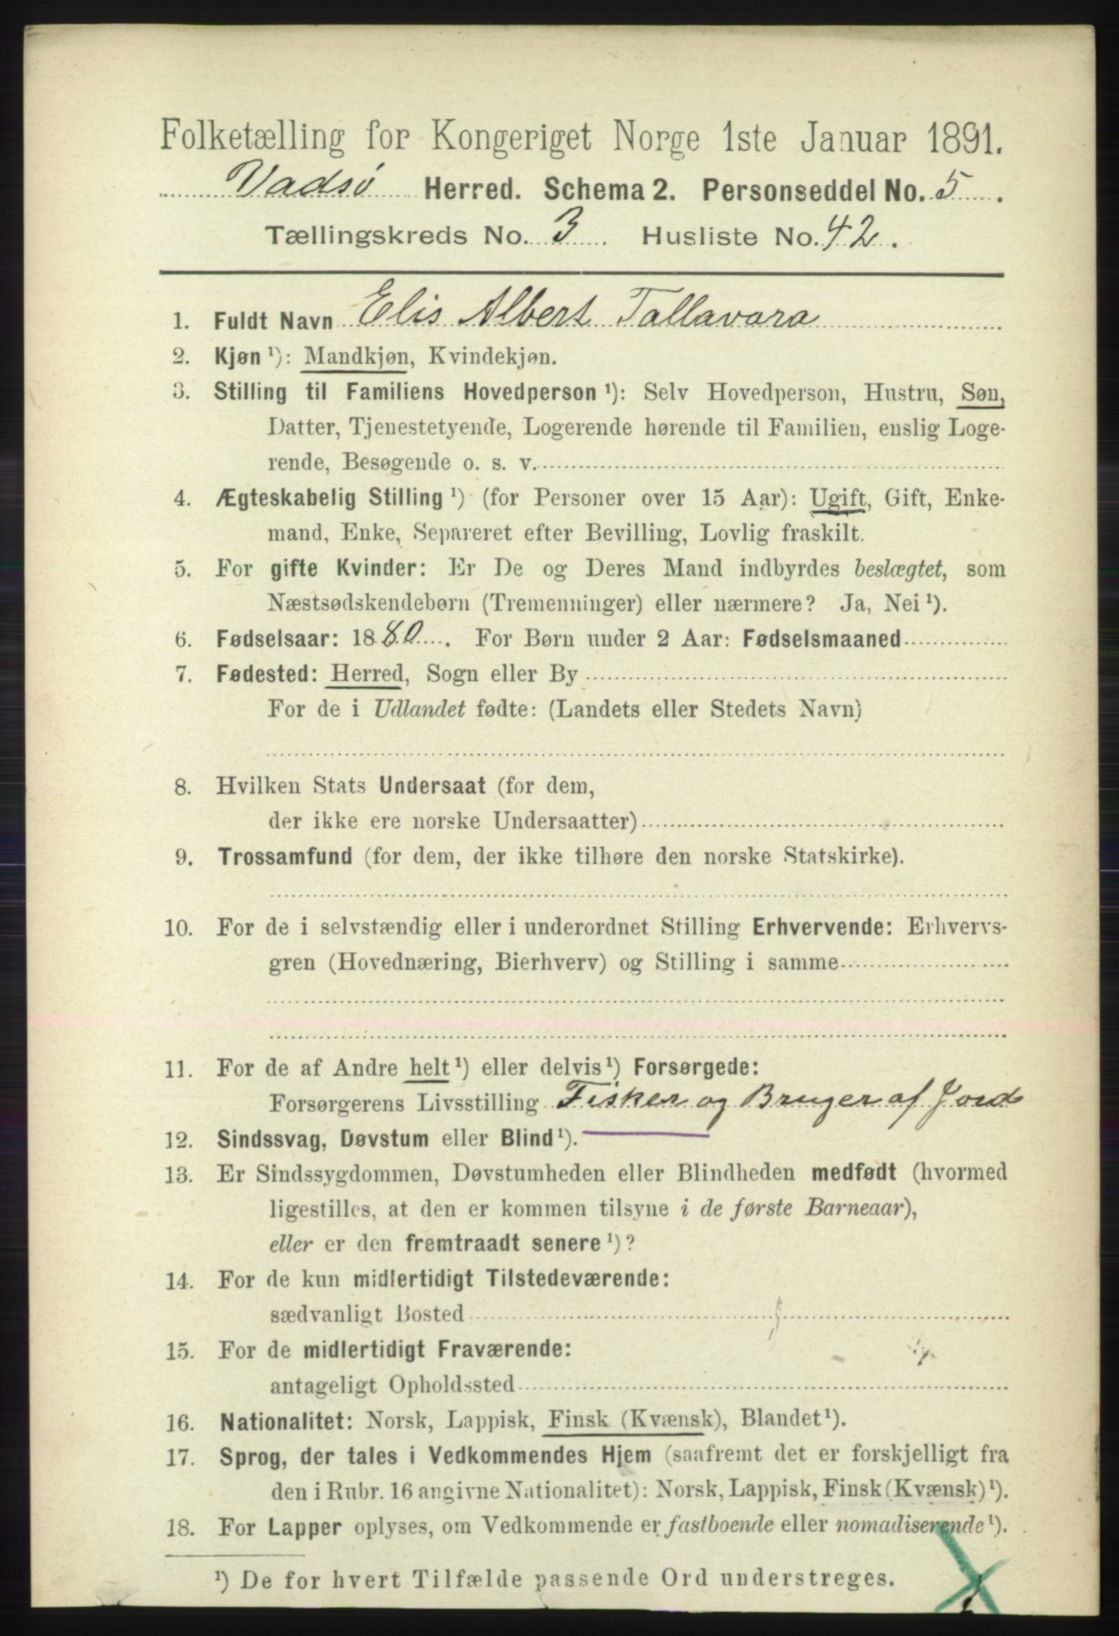 Folketælling for Kongeriget Norge 1ste Januar 1891.
Vadsø Herred. Schema 2. Personseddel No. 5.
Tællingskreds No. 3. Husliste No. 42.
1. Fuldt Navn Elis Albert Tallavara
2. Kjøn ¹): Mandkjøn, Kvindekjøn.
3. Stilling til Familiens Hovedperson ¹): Selv Hovedperson, Hustru, Søn,
Datter, Tjenestetyende, Logerende hørende til Familien, enslig Loge-
rende, Besøgende o. s. v.
4. Ægteskabelig Stilling ¹) (for Personer over 15 Aar): Ugift, Gift, Enke-
mand, Enke, Separeret efter Bevilling, Lovlig fraskilt.
5. For gifte Kvinder: Er De og Deres Mand indbyrdes beslægtet, som
Næstsødskendebørn (Tremenninger) eller nærmere? Ja, Nei ¹).
6. Fødselsaar: 1880. For Børn under 2 Aar: Fødselsmaaned
7. Fødested: Herred, Sogn eller By
For de i Udlandet fødte: (Landets eller Stedets Navn)
8. Hvilken Stats Undersaat (for dem,
der ikke ere norske Undersaatter)
9. Trossamfund (for dem, der ikke tilhøre den norske Statskirke).
10. For de i selvstændig eller i underordnet Stilling Erhvervende: Erhvervs-
gren (Hovednæring, Bierhverv) og Stilling i samme
11. For de af Andre helt ¹) eller delvis ¹) Forsørgede:
Forsørgerens Livsstilling Fisker og Bruger af Jord
12. Sindssvag, Døvstum eller Blind ¹).
13. Er Sindssygdommen, Døvstumheden eller Blindheden medfødt (hvormed
ligestilles, at den er kommen tilsyne i de første Barneaar),
eller er den fremtraadt senere ¹)?
14. For de kun midlertidigt Tilstedeværende:
sædvanligt Bosted
15. For de midlertidigt Fraværende:
antageligt Opholdssted
16. Nationalitet: Norsk, Lappisk, Finsk (Kvænsk), Blandet ¹).
17. Sprog, der tales i Vedkommendes Hjem (saafremt det er forskjelligt fra
den i Rubr. 16 angivne Nationalitet): Norsk, Lappisk, Finsk (Kvænsk) ¹).
18. For Lapper oplyses, om Vedkommende er fastboende eller nomadiserende ¹).
¹) De for hvert Tilfælde passende Ord understreges.